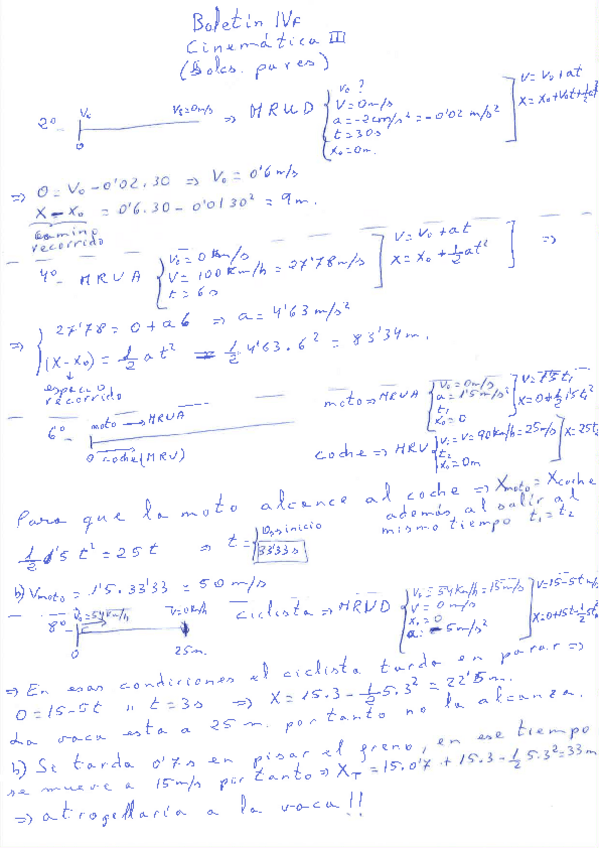 Boletín IVF
Cinemática III
(Solcs. pares)
2º- V₀ Vf=0m/s ⇒ MRUD { V₀ ? V=0m/s a=-2cm/s² = -0'02 m/s² t=30s x₀=0m. ] V=V₀+at X=X₀+V₀t+½at²
0
⇒ 0=V₀-0'02.30 ⇒ V₀=0'6m/s
X-X₀ = 0'6.30-0'01 30² = 9m.
camino
recorrido
4º- MRUA { V₀=0Km/s V=100Km/h=27'78m/s t=6s ] V=V₀+at X=X₀+½at² ] ⇒
⇒ { 27'78=0+a6 ⇒ a=4'63m/s²
(X-X₀)=½at² = ½4'63.6² = 83'34m.
espacio
recorrido
6º- moto → MRUA moto ⇒ MRUA { V₀=0m/s a=1'5m/s² t₁ x₀=0 ] V=1'5t₁ X=0+½1'5t₁²
0 coche (MRU) coche ⇒ MRU { V₀=V=90Km/h=25m/s t₂ x₀=0m ] X=25t₂
Para que la moto alcance al coche ⇒ Xmoto=Xcoche
además al salir al
mismo tiempo t₁=t₂
½1'5t²=25t ⇒ t={ 0s inicio 33'33s
b) Vmoto=1'5.33'33=50m/s
8º- V₀=54Km/h V=0Km/h ciclista ⇒ MRUD { V₀=54Km/h=15m/s V=0m/s x₀=0 a:-5m/s² ] V=15-5t m/s X=0+15t-½5t²
0 25m.
⇒ En esas condiciones el ciclista tarda en parar ⇒
0=15-5t " t=3s ⇒ X=15.3-½5.3²=22'5m.
La vaca esta a 25 m. por tanto no la alcanza.
b) Se tarda 0'7s en pisar el freno, en ese tiempo
se mueve a 15m/s por tanto ⇒ X_T=15.0'7+15.3-½5.3²=33m
⇒ atropellaría a la vaca!!